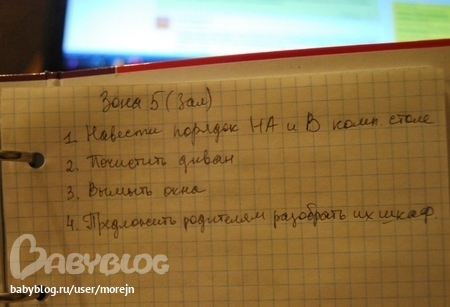 Зона 5 (Зал)
1. Навести порядок НА и В комп. столе
2. Почистить диван
3. Вымыть окна
4. Предложить родителям разобрать их шкаф.
BABYBLOG
babyblog.ru/user/morejn